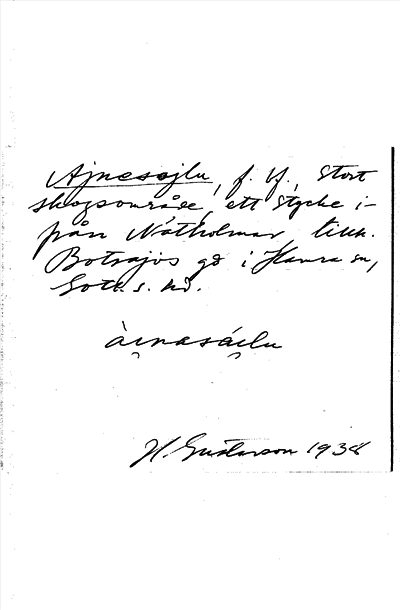 Ajnesojlu, f. Y., stort
skogsområde, ett stycke i-
från Nätholmar tillh.
Botvajds gd i Hamra sn,
Gotl. s. hd.
àɪ̯nasáɪ̯lu
H. Gustavson 1938